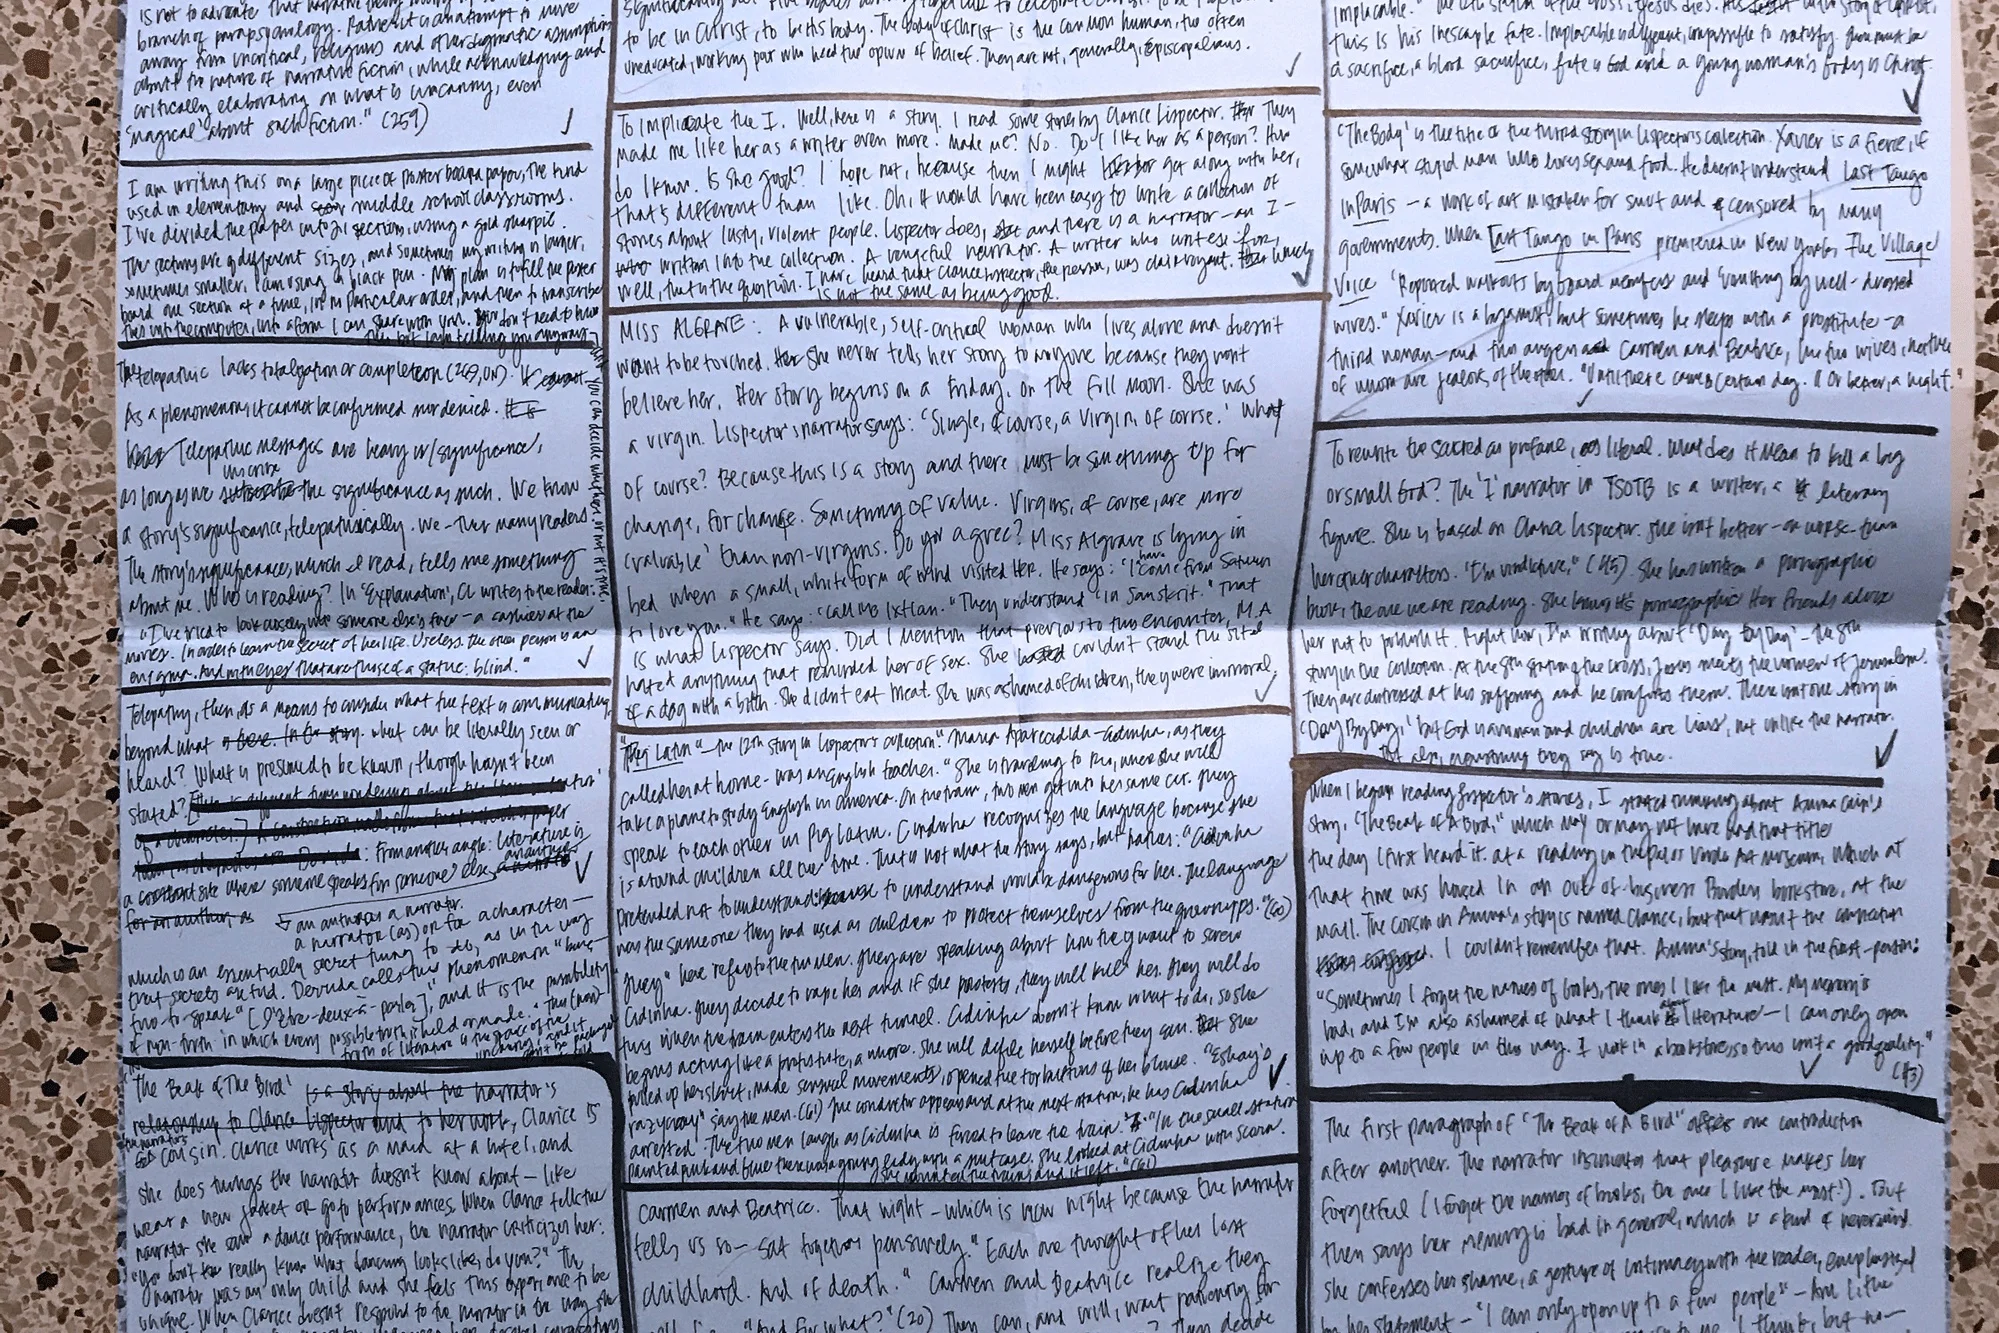 is not to advocate that narrative theory
branch of parapsychology. Rather it is an attempt to move
away from uncritical, religious and other dogmatic assumptions
about the nature of narrative fiction, while acknowledging and
critically elaborating on what is uncanny, even
'magical' about such fiction." (259)
I am writing this on a large piece of poster board paper, the kind
used in elementary and middle school classrooms.
I've divided the paper into 21 sections, using a gold sharpie.
The sections are of different sizes, and sometimes my writing is larger,
sometimes smaller. I am using a black pen. My plan is to fill the poster
board one section at a time, in no particular order, and then to transcribe
this into the computer, into a form I can share with you. You don't need to know
this but I am telling you anyway
that you can decide whether or not it's true.
The telepathic lacks totalization or completion (269, UN). It
As a phenomenon, it cannot be confirmed nor denied. It is
Telepathic messages are heavy w/significance,
inscribe
as long as we subscribe the significance as such. We know
a story's significance, telepathically. We - the many readers.
The story's significance, which I read, tells me something
about me. Who is reading? In 'Explanation', CL writes to the reader:
"I've tried to look closely into someone else's face - a cashier at the
movies. In order to learn the secret of her life. Useless. The other person is an
enigma. And with eyes that are those of a statue: blind."
Telepathy, then, as a means to consider what the text is communicating,
beyond what is here. In the story. what can be literally seen or
heard? What is presumed to be known, though hasn't been
stated?
: From another angle: Literature is
a constant site where someone speaks for someone else
for an author, as an author as a narrator,
a narrator (as) or for a character -
which is an essentially secret thing to do, as in the way
that secrets are told. Derrida calls this phenomenon "being-
two-to-speak" [L'être-deux-à-parler]," and it is the possibility
of non-truth in which every possible truth is held or made. "This (non)
truth of literature is the space of the
uncanny, and it
'The Beak of The Bird' is a story about the narrator's
relationship to Clarice Lispector and to her work, Clarice is
the narrator's
cousin. Clarice works as a maid at a hotel, and
she does things the narrator doesn't know about - like
wear a new jacket or go to performances. When Clarice tells the
narrator she saw a dance performance, the narrator criticizes her:
"You don't really know what dancing looks like, do you?" The
narrator was an only child and she feels this experience to be
unique. When Clarice doesn't respond to the narrator in the way she
to be in Christ, to be his body. The body of Christ is the common human, the often
uneducated, working poor who need the opium of belief. They are not, generally, Episcopalians.
To implicate the I. Well, here is a story. I read some stories by Clarice Lispector. They
made me like her as a writer even more. Made me? No. Do I like her as a person? How
do I know. Is she good? I hope not, because then I might get along with her,
that's different than like. Oh, it would have been easy to write a collection of
stories about lusty, violent people. Lispector does, and there is a narrator - an I -
written into the collection. A vengeful narrator. A writer who writes for,
well, that's the question. I have heard that Clarice Lispector, the person, was clairvoyant. Which
is not the same as being good.
MISS ALGRAVE: A vulnerable, self-critical woman who lives alone and doesn't
want to be touched. She never tells her story to anyone because they won't
believe her. Her story begins on a Friday, on the full moon. She was
a virgin. Lispector's narrator says: 'Single, of course, a virgin, of course.' Why
of course? Because this is a story and there must be something up for
change, for change. Something of value. Virgins, of course, are more
'valuable' than non-virgins. Do you agree? Miss Algrave is lying in
bed when a small, white form of wind visited her. He says: "I have come from Saturn
to love you." He says: "Call me Ixtlan." They understand "in Sanskrit." That
is what Lispector says. Did I mention that previous to this encounter, M.A.
hated anything that reminded her of sex. She couldn't stand the sight
of a dog with a bitch. She didn't eat meat. She was ashamed of children, they were immoral.
"Pig Latin" - the 12th story in Lispector's collection. "Maria Aparecida - Cidinha, as they
called her at home - was an English teacher." She is traveling to Rio, where she will
take a plane to study English in America. On the train, two men get into her same car. They
speak to each other in Pig Latin. Cidinha recognizes the language because she
is around children all the time. That is not what the story says, but rather: "Cidinha
pretended not to understand: to understand would be dangerous for her. The language
was the same one they had used as children to protect themselves from the grownups." (60)
"They" here refers to the two men. They are speaking about how they want to screw
Cidinha. They decide to rape her and if she protests, they will kill her. They will do
this when the train enters the next tunnel. Cidinha doesn't know what to do, so she
begins acting like a prostitute, a whore. She will defile herself before they can. She
pulled up her skirt, made sensual movements, opened the top buttons of her blouse. "Eshay's
razycay" say the men. (61) The conductor appears and at the next station, he has Cidinha
arrested. The two men laugh as Cidinha is forced to leave the train. "In the small station
painted pink and blue there was a young lady with a suitcase. She looked at Cidinha with scorn.
She mounted the train and it left." (61)
Carmen and Beatrice. That night - which is now night because the narrator
tells us so - sat together pensively. "Each one thought of her lost
childhood. And of death." Carmen and Beatrice realize they
"And for what?" (20) They can, and will, wait patiently for
implacable." The 12th station of the cross, Jesus dies.
this is his inescapable fate. Implacable: indifferent, impossible to satisfy. There must be
a sacrifice, a blood sacrifice, fate is God and a young woman's body is Christ.
'The Body' is the title of the third story in Lispector's collection. Xavier is a fierce, if
somewhat stupid man who loves sex and food. He doesn't understand Last Tango
in Paris - a work of art mistaken for smut and censored by many
governments. When Last Tango in Paris premiered in New York, The Village
Voice "Reported walkouts by board members and 'vomiting by well-dressed
wives." Xavier is a bigamist, but sometimes he sleeps with a prostitute - a
third woman - and this angers Carmen and Beatrice, his two wives, neither
of whom are jealous of the other. "Until there came a certain day. Or better, a night."
To rewrite the sacred as profane, as literal. What does it mean to kill a big
or small God? The 'I' narrator in TSOTB is a writer, a literary
figure. She is based on Clarice Lispector. She isn't better - or worse - than
her other characters. "I'm vindictive," (45). She has written a pornographic
book, the one we are reading. She knows it's pornographic. Her friends advise
her not to publish it. Right now, I'm writing about 'Day by Day' - the 8th
story in the collection. At the 8th station of the cross, Jesus meets the women of Jerusalem.
They are distressed at his suffering and he comforts them. There isn't one story in
'Day By Day,' but God is a woman and children are liars, not unlike the narrator.
But also, everything they say is true.
When I began reading Lispector's stories, I started thinking about Amina Cain's
story, "The Beak of A Bird," which may or may not have had that title
the day I first heard it. at a reading in the Palos Verde Art Museum, which at
that time was housed in an out-of-business Borders bookstore, at the
mall. The cousin in Amina's story is named Clarice, but that wasn't the connection
. I couldn't remember that. Amina's story, told in the first-person:
"Sometimes I forget the names of books, the ones I like the most. My memory is
bad, and I'm also ashamed of what I think about literature - I can only open
up to a few people in this way. I work in a bookstore, so this isn't a good quality."
(43)
The first paragraph of "The Beak of A Bird" offers one contradiction
after another. The narrator insinuates that pleasure makes her
forgetful (I forget the names of books, the ones I like the most!). But
then says her memory is bad in general, which is a kind of
she confesses her shame, a gesture of intimacy with the reader, emphasized
by her statement - "I can only open up to a few people" -